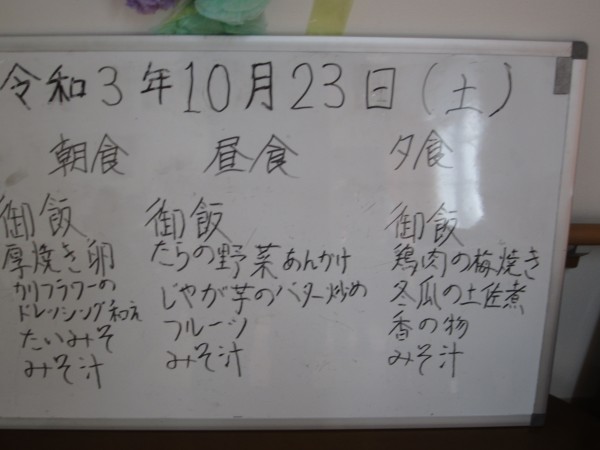 令和3年10月23日(土)
朝食
御飯
厚焼き卵
カリフラワーの
ドレッシング和え
たいみそ
みそ汁
昼食
御飯
たらの野菜あんかけ
じゃが芋のバター炒め
フルーツ
みそ汁
夕食
御飯
鶏肉の梅焼き
冬瓜の土佐煮
香の物
みそ汁